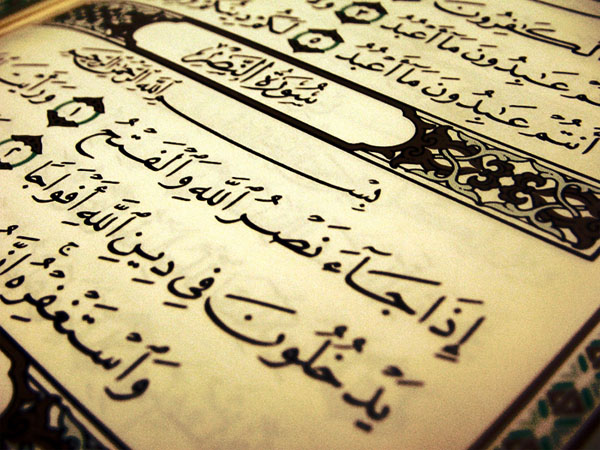 ٱلْكَـٰفِرُونَ
عَـٰبِدُونَ مَآ أَعْبُدُ ٣
أَنتُمْ عَـٰبِدُونَ مَآ أَعْبُدُ ٥ لَكُمْ دِينُكُمْ
سُورَةُ ٱلنَّصْرِ
بِسْمِ ٱللَّهِ ٱلرَّحْمَـٰنِ ٱلرَّحِيمِ
إِذَا جَآءَ نَصْرُ ٱللَّهِ وَٱلْفَتْحُ ١ وَرَأَيْتَ
يَدْخُلُونَ فِى دِينِ ٱللَّهِ أَفْوَاجًا ٢
وَٱسْتَغْفِرْهُ